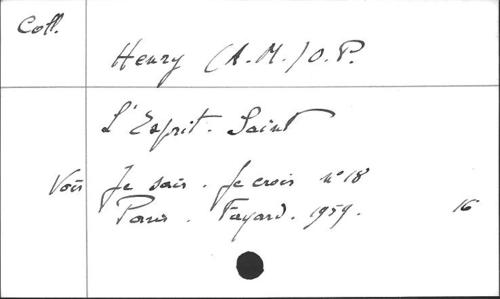 Coll.
Henry (A.M.) O.P.
L'Esprit-Saint
Voir Je sais. Je crois n°18
Paris. Fayard. 1959. 16